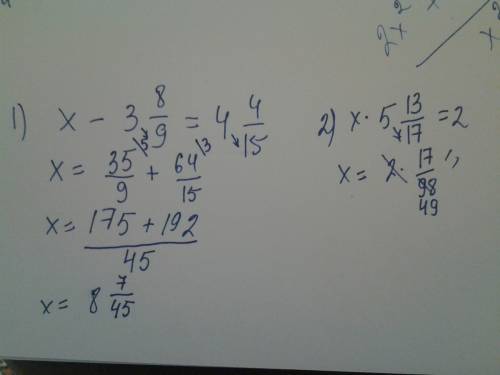 2 x
2x x
1) x - 3 8/9 = 4 4/15
x = 35/9 + 64/15
x = 175 + 192 / 45
x = 8 7/45
2) x · 5 13/17 = 2
x = 2 · 17/98
49